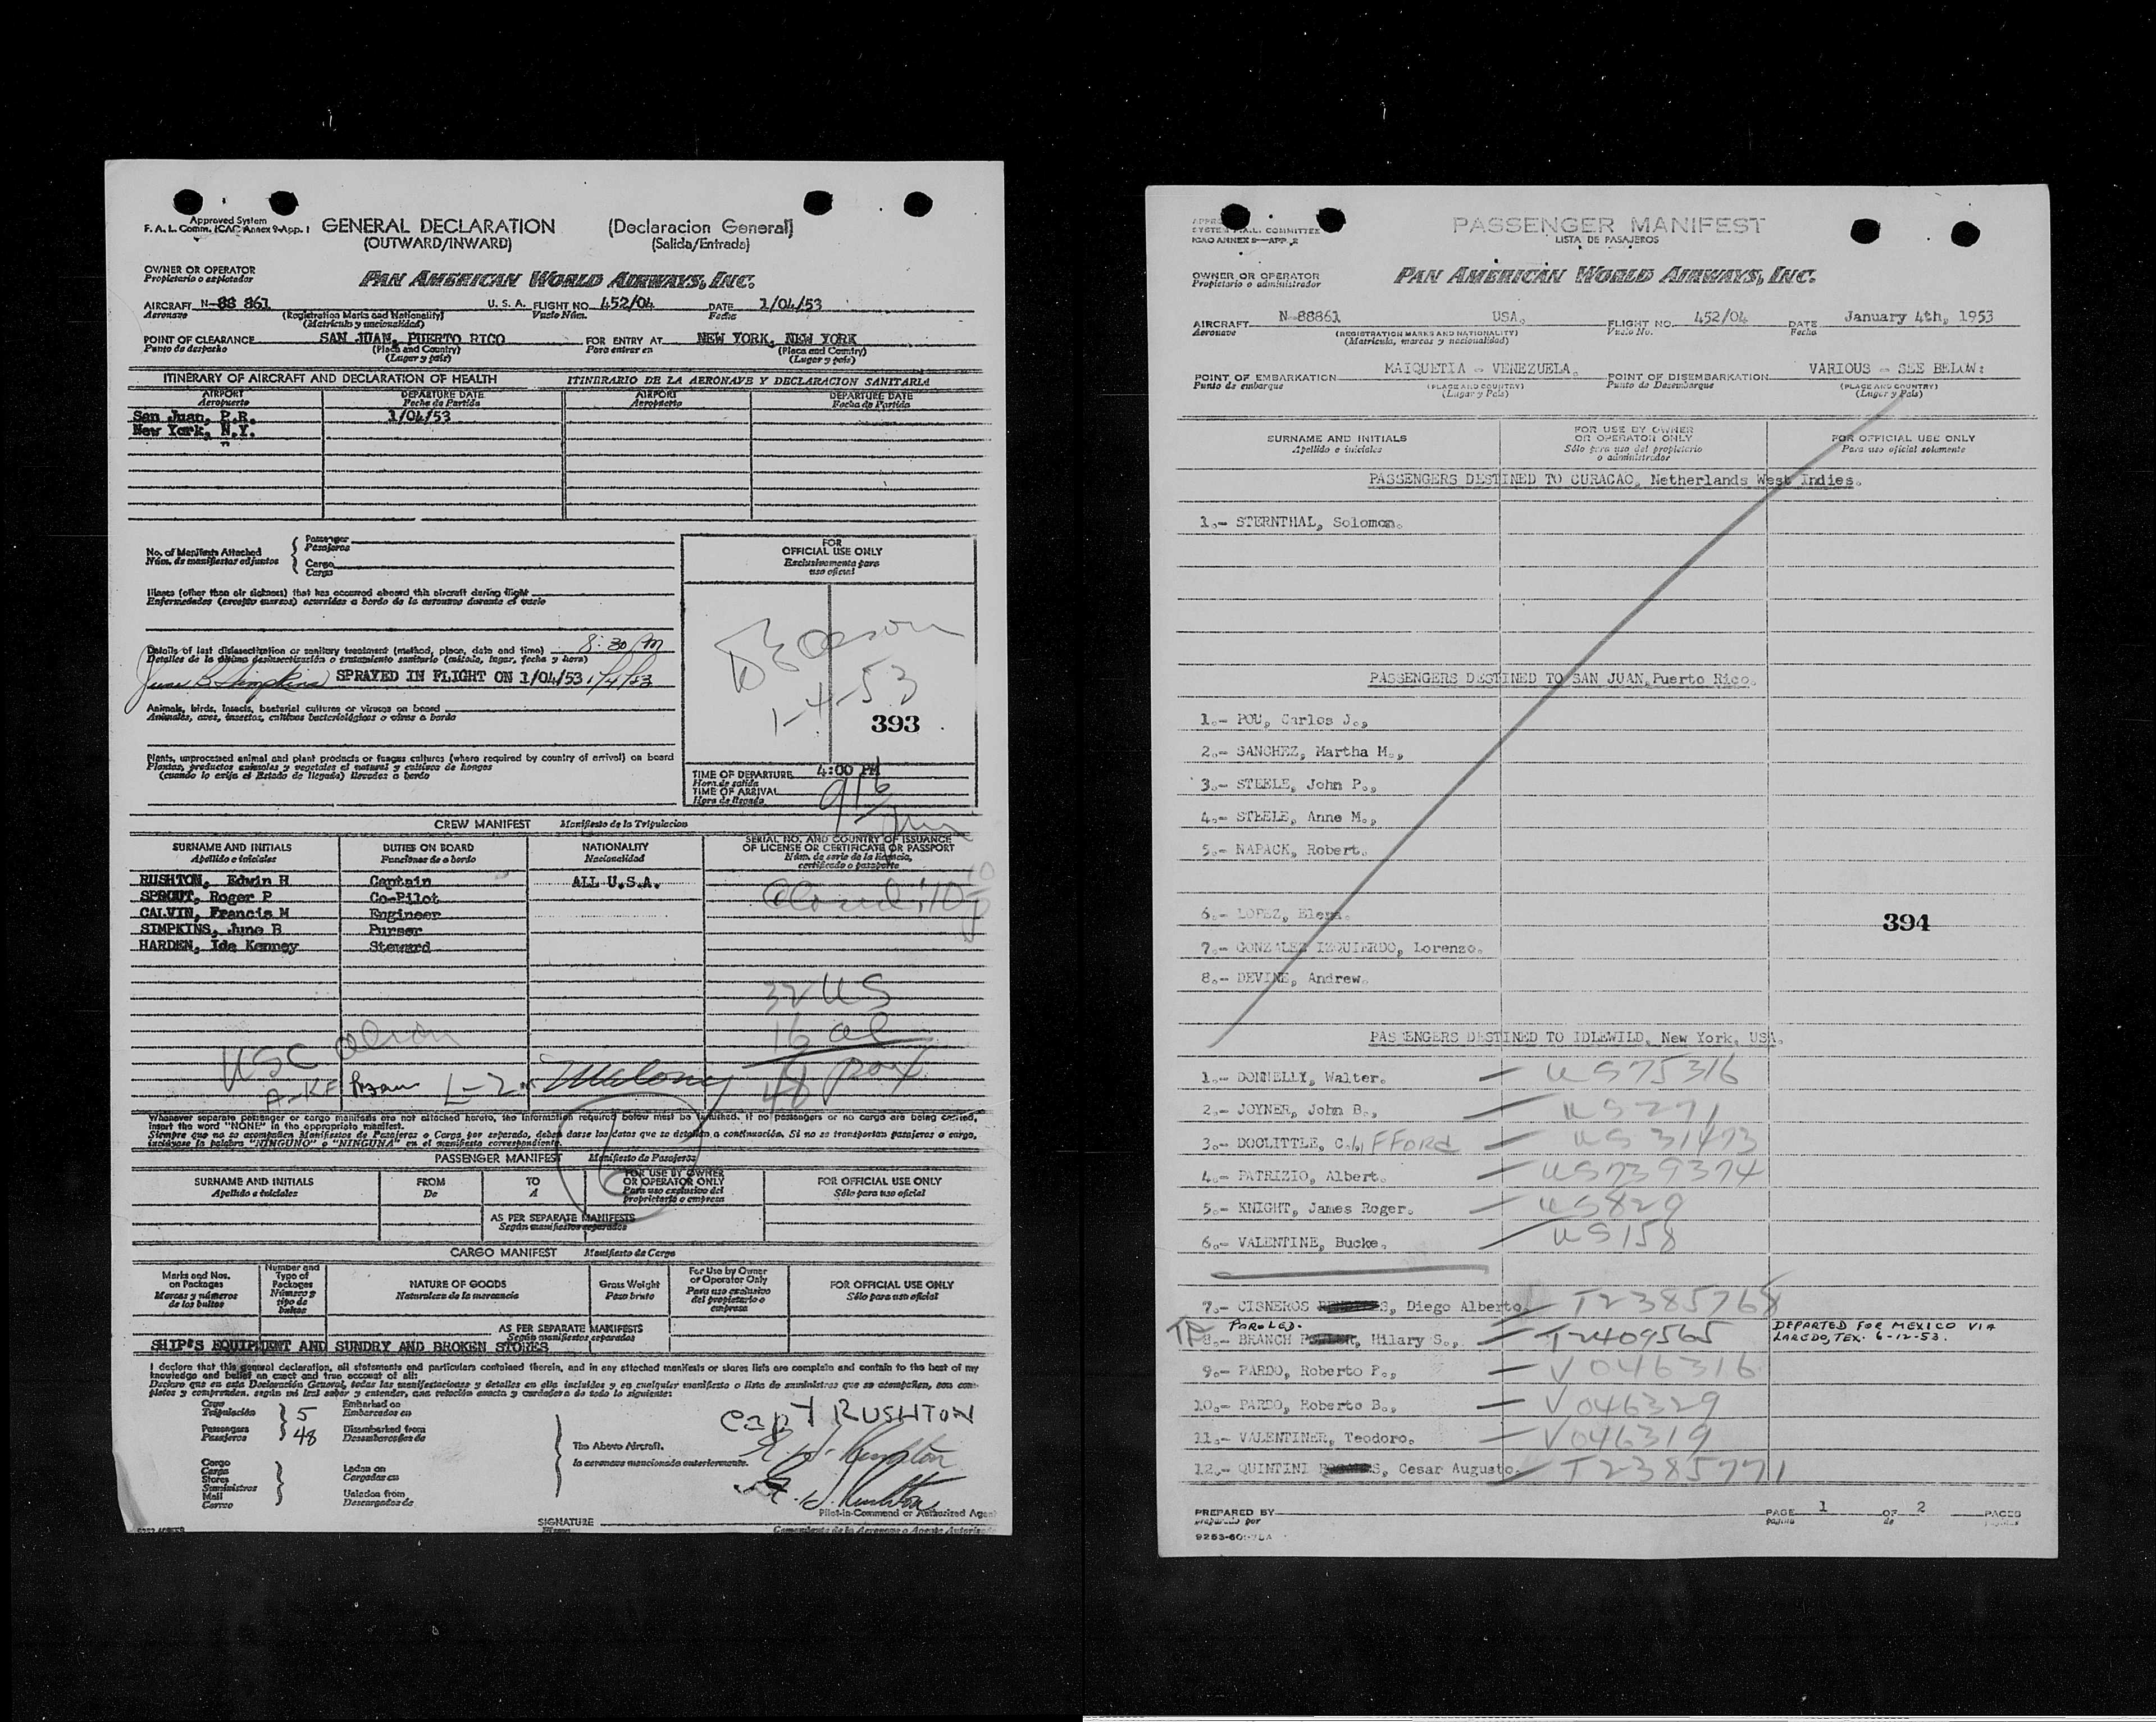 Approved System
F. A. L. Comm. ICAC Annex 9-App. 1
GENERAL DECLARATION (Declaracion General)
(OUTWARD/INWARD) (Salida/Entrada)
OWNER OR OPERATOR
Propietario o explotador
PAN AMERICAN WORLD AIRWAYS, INC.
AIRCRAFT N-88 861 U. S. A. FLIGHT NO. 452/04 DATE 1/04/53
Aeronave (Registration Marks and Nationality) Vuelo Núm. Fecha
(Matrícula y nacionalidad)
POINT OF CLEARANCE SAN JUAN, PUERTO RICO FOR ENTRY AT NEW YORK, NEW YORK
Punto de despacho (Place and Country) Para entrar en (Place and Country)
(Lugar y país) (Lugar y país)
ITINERARY OF AIRCRAFT AND DECLARATION OF HEALTH ITINERARIO DE LA AERONAVE Y DECLARACION SANITARIA
AIRPORT DEPARTURE DATE AIRPORT DEPARTURE DATE
Aeropuerto Fecha de Partida Aeropuerto Fecha de Partida
San Juan, P.R. 1/04/53
New York, N.Y.
No. of Manifests Attached
Núm. de manifiestos adjuntos
Passenger
Pasajeros
Cargo
Carga
FOR
OFFICIAL USE ONLY
Exclusivamente para
uso oficial
Illness (other than air sickness) that has occurred aboard this aircraft during flight
Enfermedades (excepto mareos) ocurridas a bordo de la aeronave durante el vuelo
Details of last disinsectization or sanitary treatment (method, place, date and time) 8:30 PM
Detalles de la última desinsectización o tratamiento sanitario (método, lugar, fecha y hora)
June B Simpkins SPRAYED IN FLIGHT ON 1/04/53 1/4/53
1-4-53
393
Animals, birds, insects, bacterial cultures or viruses on board
Animales, aves, insectos, cultivos bacteriológicos o virus a bordo
Plants, unprocessed animal and plant products or fungus cultures (where required by country of arrival) on board
Plantas, productos animales y vegetales al natural y cultivos de hongos
(cuando lo exija el Estado de llegada) llevados a bordo
TIME OF DEPARTURE 4:00 PM
Hora de salida
TIME OF ARRIVAL 916
Hora de llegada
CREW MANIFEST Manifiesto de la Tripulacion
SURNAME AND INITIALS DUTIES ON BOARD NATIONALITY SERIAL NO. AND COUNTRY OF ISSUANCE
OF LICENSE OR CERTIFICATE OR PASSPORT
Apellido e iniciales Funciones de a bordo Nacionalidad Núm. de serie de la licencia,
certificado o pasaporte
RUSHTON, Edwin H Captain ALL U.S.A.
SPROUT, Roger P Co-Pilot
CALVIN, Francis M Engineer
SIMPKINS, June B Purser
HARDEN, Ida Kenney Steward
32 US
16 al
48 pax
USC Olson
L-2
Whenever separate passenger or cargo manifests are not attached hereto, the information required below must be furnished. If no passengers or no cargo are being carried,
insert the word "NONE" in the appropriate manifest.
Siempre que no se acompañen Manifiestos de Pasajeros o Carga por separado, deben darse los datos que se detallan a continuación. Si no se transportan pasajeros o carga,
inclúyase la palabra "NINGUNO" o "NINGUNA" en el manifiesto correspondiente.
PASSENGER MANIFEST Manifiesto de Pasajeros
SURNAME AND INITIALS FROM TO FOR USE BY OWNER OR OPERATOR ONLY FOR OFFICIAL USE ONLY
Apellido e iniciales De A Para uso exclusivo del propietario o empresa Sólo para uso oficial
AS PER SEPARATE MANIFESTS
Según manifiestos separados
CARGO MANIFEST Manifiesto de Carga
Marks and Nos. on Packages Number and Type of Packages NATURE OF GOODS Gross Weight For Use by Owner or Operator Only FOR OFFICIAL USE ONLY
Marcas y números de los bultos Número y tipo de bultos Naturaleza de la mercancía Peso bruto Para uso exclusivo del propietario o empresa Sólo para uso oficial
AS PER SEPARATE MANIFESTS
Según manifiestos separados
SHIP'S EQUIPMENT AND SUNDRY AND BROKEN STORES
I declare that this general declaration, all statements and particulars contained therein, and in any attached manifests or stores lists are complete and contain to the best of my
knowledge and belief an exact and true account of all:
Crew
Tripulación 5
Embarked on
Embarcados en
Passengers
Pasajeros 48
Disembarked from
Desembarcados de
Cargo
Carga
Stores
Suministros
Mail
Correo
Laden on
Cargados en
Unladen from
Descargados de
The Above Aircraft.
la aeronave mencionada anteriormente.
CAPT RUSHTON
E. H. Rushton
E. H. Rushton
SIGNATURE Pilot-in-Command or Authorized Agent
Comandante de la Aeronave o Agente Autorizado
SYSTEM F.A.L. COMMITTEE
ICAO ANNEX 9—APP. 2
PASSENGER MANIFEST
LISTA DE PASAJEROS
OWNER OR OPERATOR
Propietario o administrador
PAN AMERICAN WORLD AIRWAYS, INC.
AIRCRAFT N-88861 USA. FLIGHT NO. 452/04 DATE January 4th, 1953
Aeronave (REGISTRATION MARKS AND NATIONALITY) Vuelo No. Fecha
(Matrícula, marcas y nacionalidad)
POINT OF EMBARKATION MAIQUETIA - VENEZUELA. POINT OF DISEMBARKATION VARIOUS - SEE BELOW:
Punto de embarque (PLACE AND COUNTRY) Punto de Desembarque (PLACE AND COUNTRY)
(Lugar y País) (Lugar y País)
SURNAME AND INITIALS FOR USE BY OWNER OR OPERATOR ONLY FOR OFFICIAL USE ONLY
Apellido e iniciales Sólo para uso del propietario o administrador Para uso oficial solamente
PASSENGERS DESTINED TO CURACAO, Netherlands West Indies.
1.- STERNTHAL, Solomon.
PASSENGERS DESTINED TO SAN JUAN, Puerto Rico.
1.- POU, Carlos J.,
2.- SANCHEZ, Martha M.,
3.- STEELE, John P.,
4.- STEELE, Anne M.,
5.- NAPACK, Robert.
6.- LOPEZ, Elena.
394
7.- GONZALEZ IZQUIERDO, Lorenzo.
8.- DEVINE, Andrew.
PASSENGERS DESTINED TO IDLEWILD, New York, USA.
1.- DONNELLY, Walter. — US75316
2.- JOYNER, John B., — US271
3.- DOOLITTLE, C. lifford — US 31473
4.- PATRIZIO, Albert. — US739374
5.- KNIGHT, James Roger. — US829
6.- VALENTINE, Bucke. — US158
7.- CISNEROS S, Diego Alberto — T2385768
TP PAROLED.
8.- BRANCH, Hilary S., — T2409565 DEPARTED FOR MEXICO VIA
LAREDO, TEX. 6-12-53.
9.- PARDO, Roberto P., — V 046316
10.- PARDO, Roberto B., — V 046329
11.- VALENTINER, Teodoro. — V046319
12.- QUINTINI S, Cesar Augusto — T2385771
PREPARED BY PAGE 1 OF 2 PAGES
preparado por página de páginas